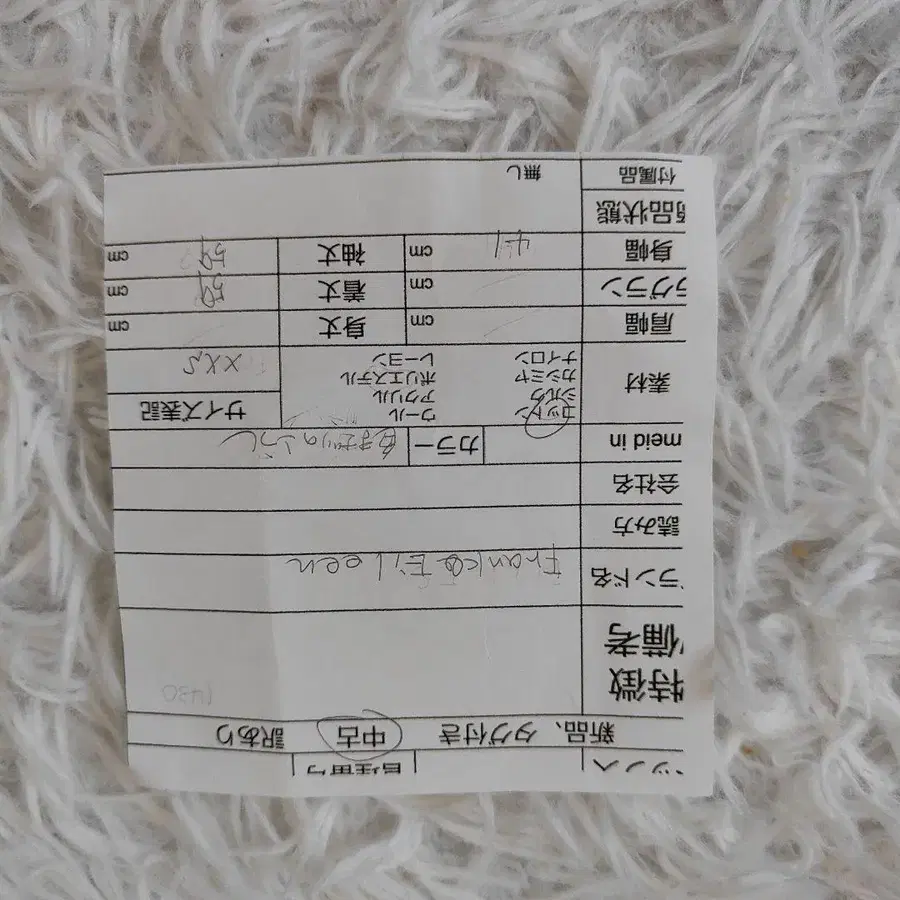 新品、タグ付き 中古 訳あり
特徴 1430
備考
ランド名 Frank&Eileen
読み方
会社名
meid in カラー
素材 コットン ウール サイズ表記
シルク アクリル
カシミヤ ポリエステル XXS
ナイロン レーヨン
肩幅 cm 身丈 cm
ラグラン cm 着丈 59 cm
身幅 cm 袖丈 59 cm
品状態
付属品 無し